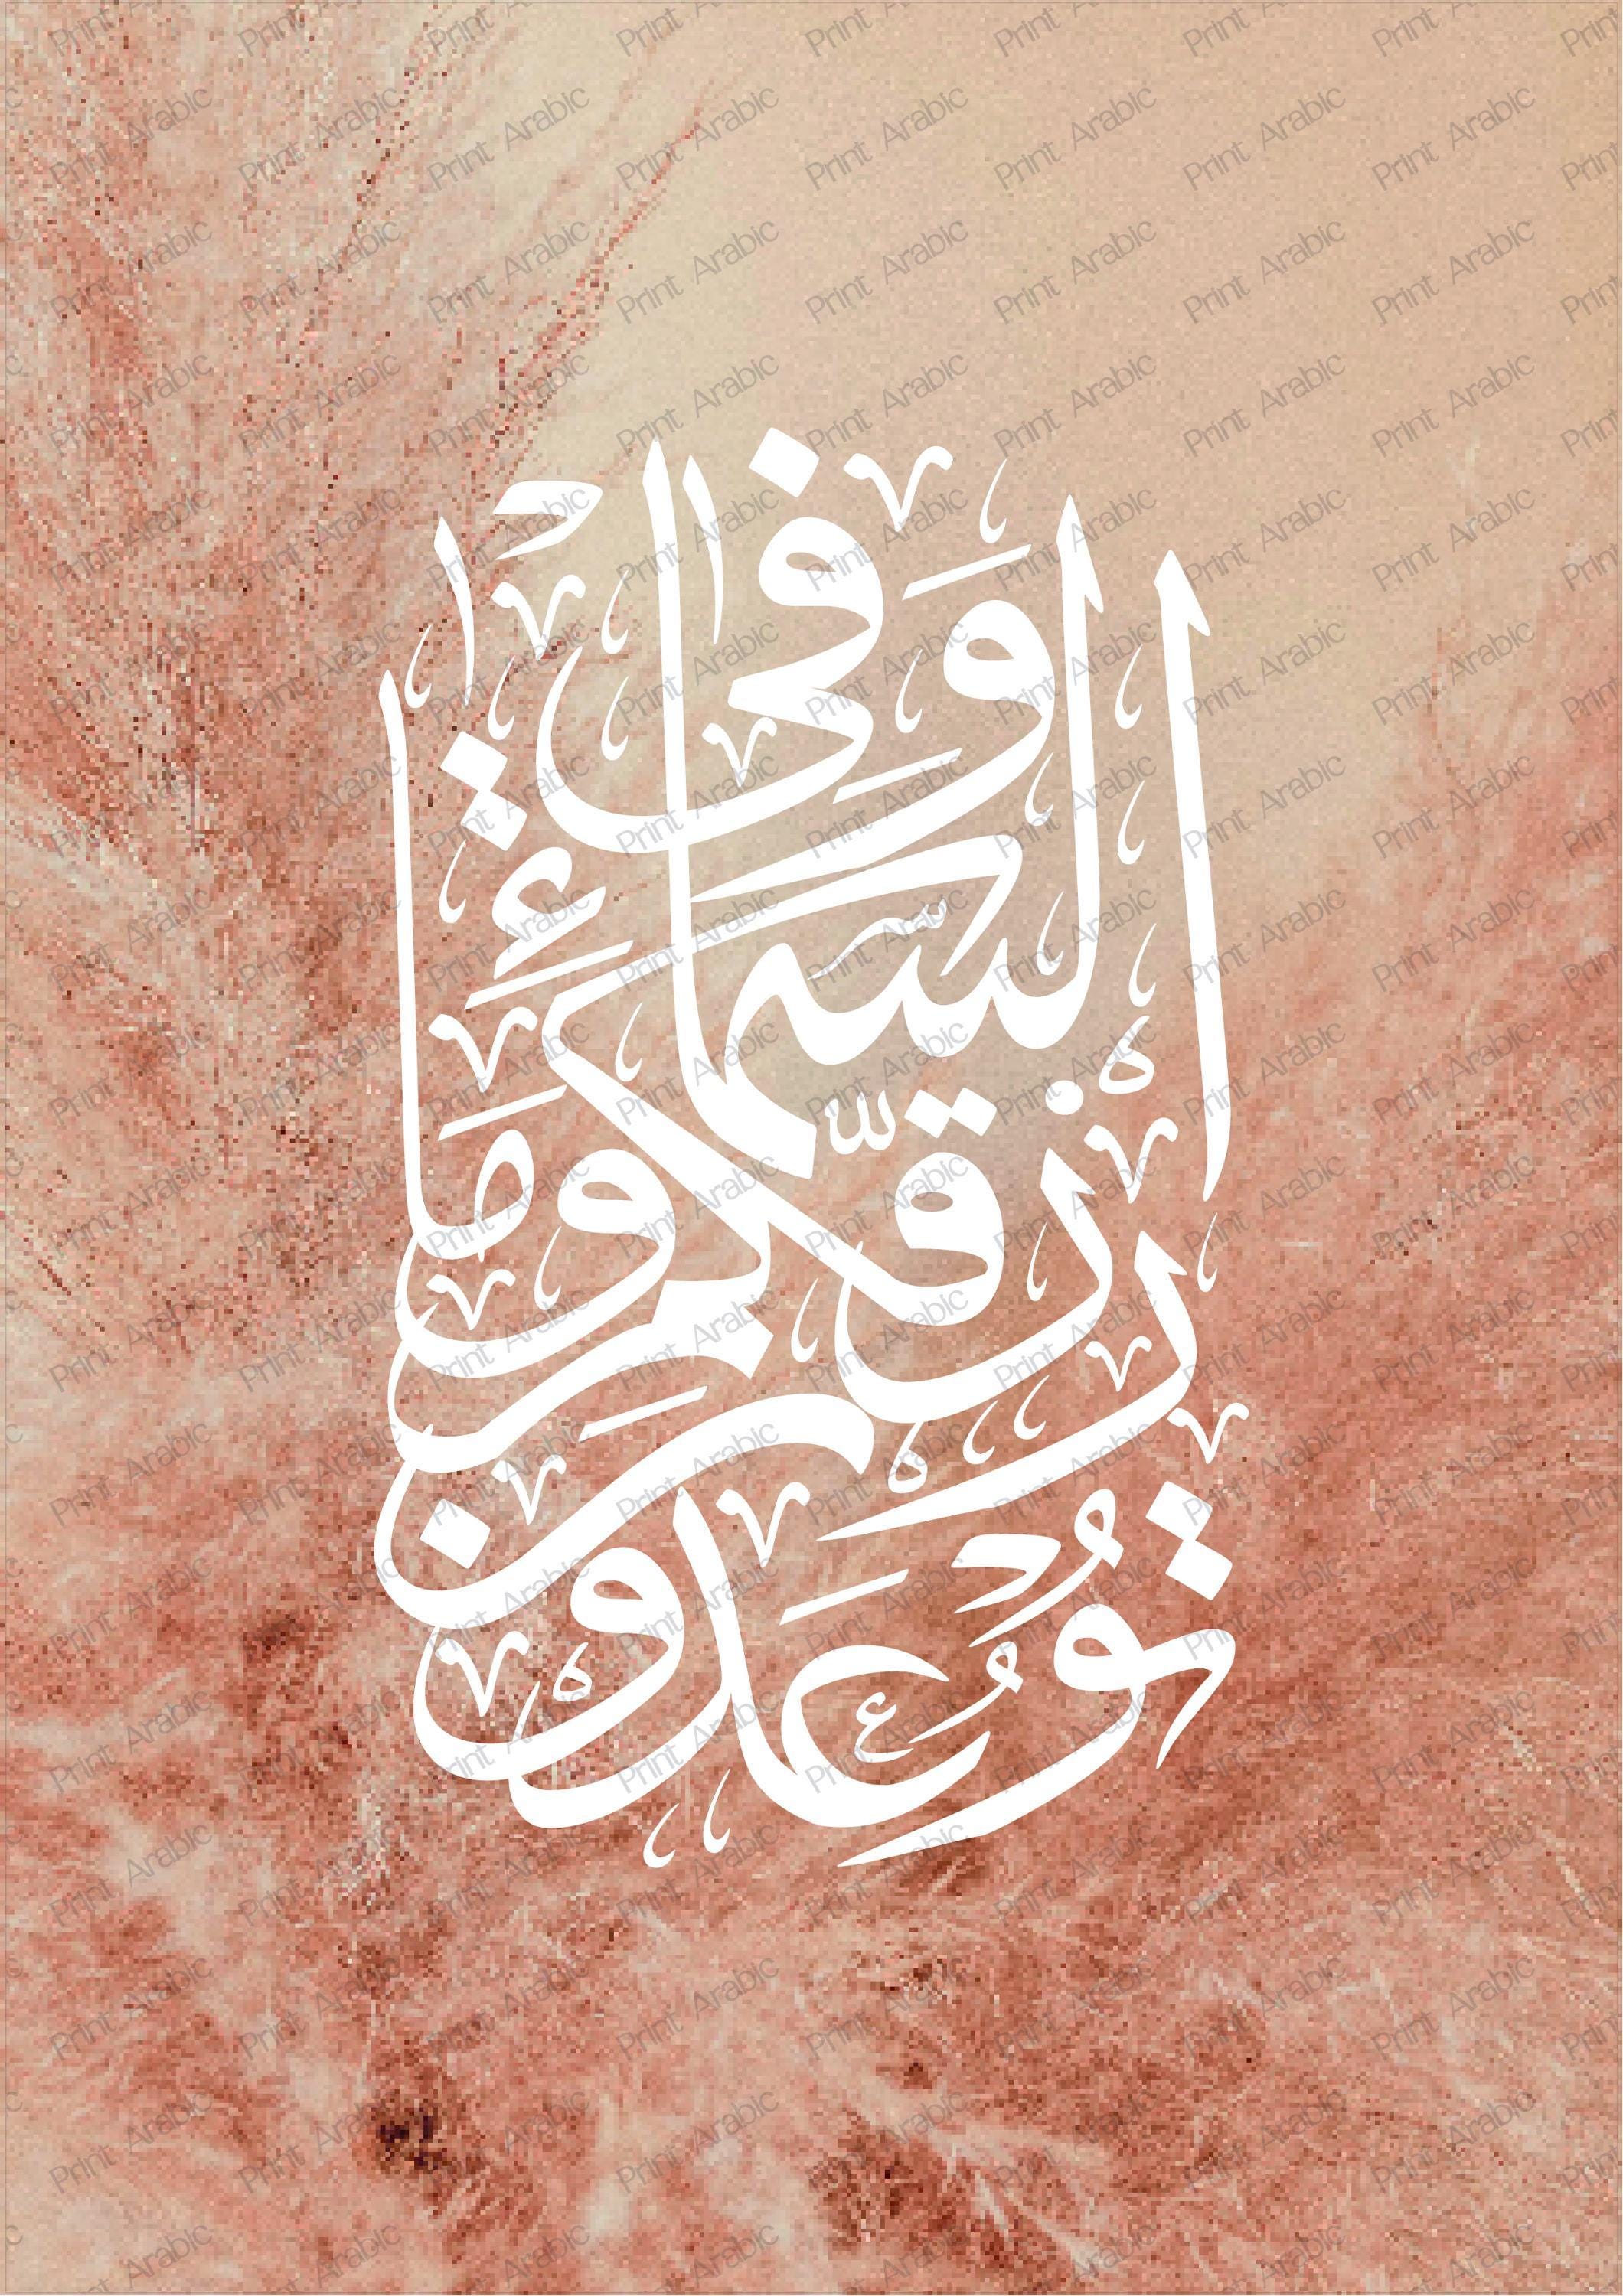 وَفِي السَّمَاءِ
رِزْقُكُمْ وَمَا
تُوعَدُونَ
Print Arabic